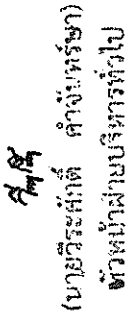 (นายวีระศักดิ์ คำจันทร์ษา)
หัวหน้าฝ่ายบริหารทั่วไป